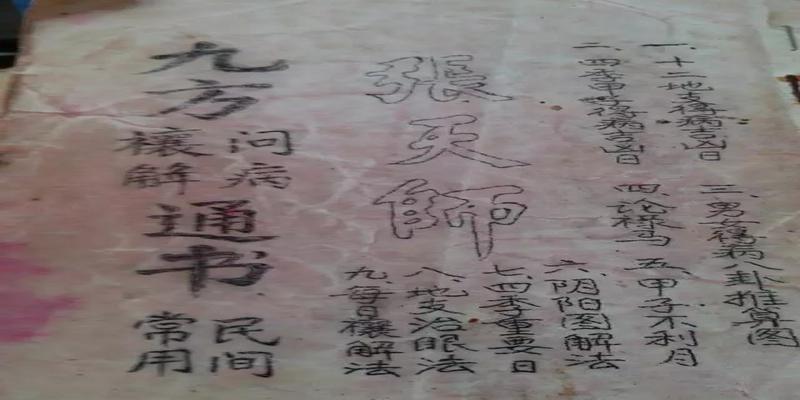 一、十二地支得病吉凶日
二、四季得病吉凶日
三、男女得病八卦推算图
四论禄马
五、甲子不利月
六、阴阳图解法
七、四季重要日
八、地支治眼法
九、每日禳解法
張天師
九方
问病
禳解
通书
民间
常用